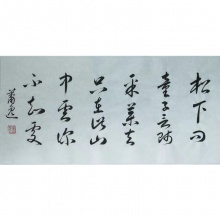 松下问
童子言师
采药去
只在此山
中云深
不知处